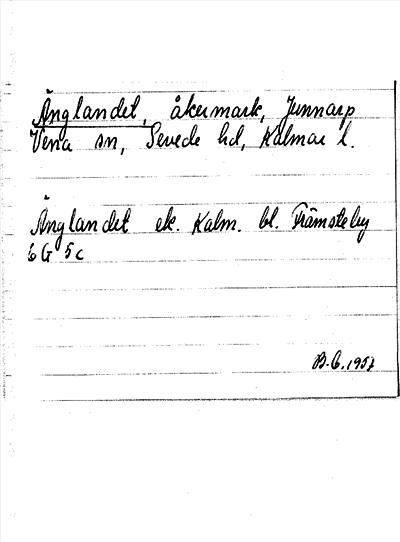 Änglandet, åkermark, Junnarp
Vena sn, Sevede hd, Kalmar l.
Änglandet ek. Kalm. bl. Främsteby
6 G 5 c
B. G. 1957